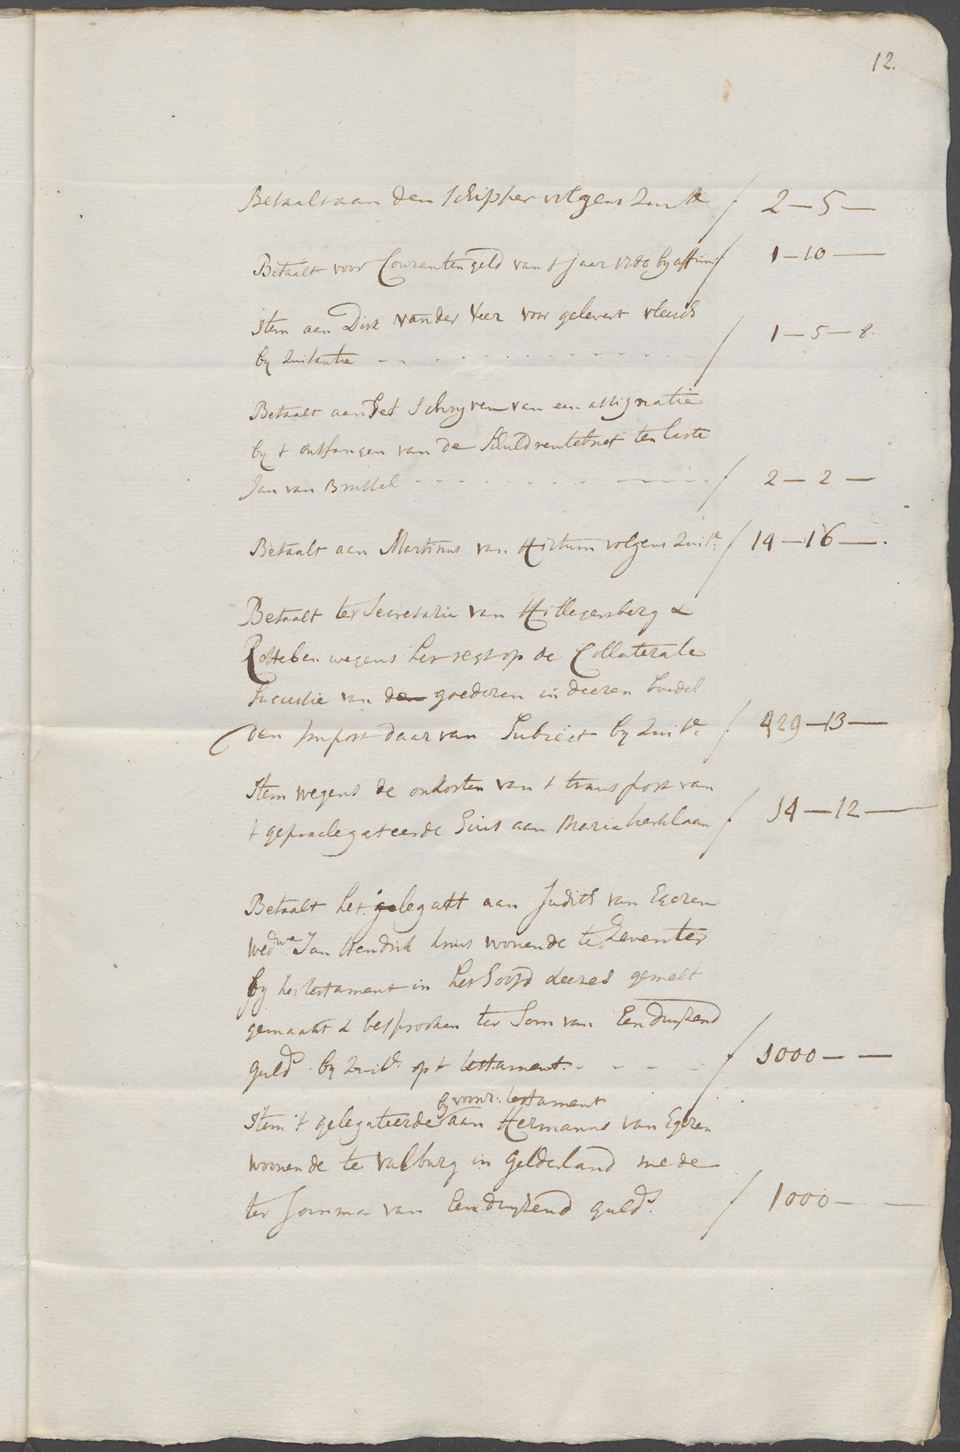 12.
Betaalt aan den Schipper volgens Quit / 2 – 5 –
Betaalt voor Couranten geld van t jaar 1780 by / 1 – 10 –
Item aan Dirk van der Veer voor gelevert vleesch
by Quitantie - - - - - - - / 1 – 5 – 8.
Betaalt aan het Schryven van een assignatie
by t ontfangen van de Schuldrentebrief ten laste
Jan van Brussel - - - - - - / 2 – 2 –
Betaalt aan Martinus van Hirtum volgens Quite / 14 – 16 –.
Betaalt ter Secretarie van Hillegersberg &
Rotteban wegens het regt op de Collaterale
Successie van den goederen in deezen boedel
den Impost daar van Subject by Quite / 429 – 13 –
Item wegens de onkosten van t transport van
t gepraelegateerde huis aan Maria Kerklaan / 14 – 12 –
Betaalt het gelegatt aan Judith van Egeren
Wedwe Jan Hendrik kruis wonende te Deventer
by het testament in het hoofd deezes gemelt
gemaakt & besproken ter Som van Een duyzend
guld. by Quite op t testament. - - - - / 1000 – –
by voorn: testament
Item 't gelegateerde aan Hermanus van Egeren
woonende te Valburg in Gelderland mede
ter Somma van Een duyzend guld.s / 1000 – –